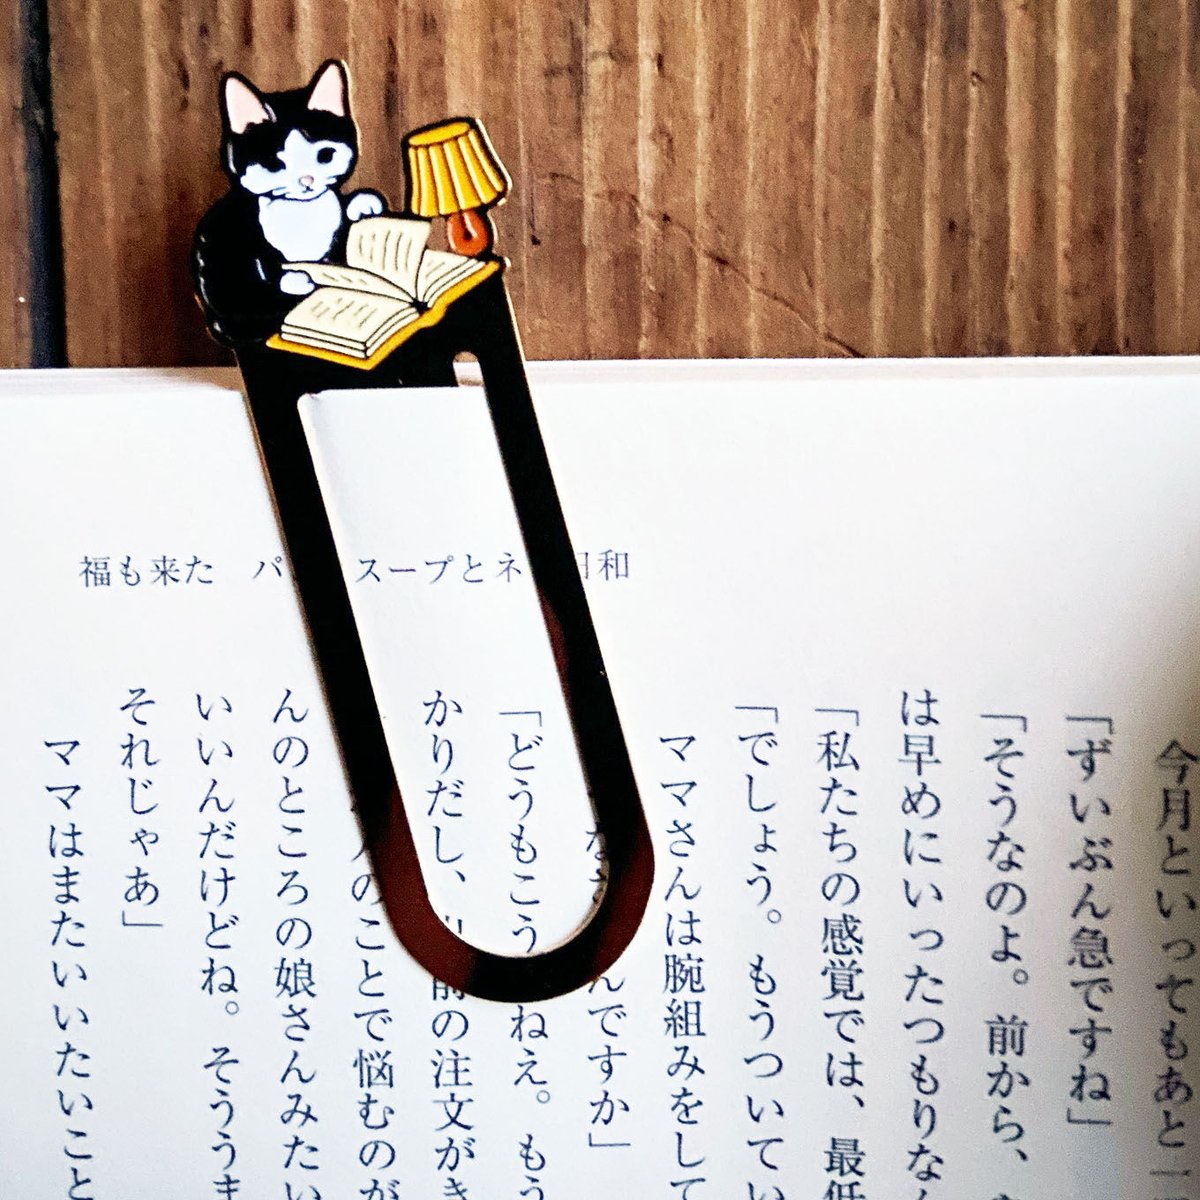 福も来た パ スープとネ 日和
今月といってもあと一
「ずいぶん急ですね」
「そうなのよ。前から、
は早めにいったつもりな
「私たちの感覚では、最低
「でしょう。もうついてい
ママさんは腕組みをして
んですか」
「どうもこう ねえ。もう
かりだし、 前の注文がき
のことで悩むのが
んのところの娘さんみたい
いいんだけどね。そううま
それじゃあ」
ママはまたいいたいこと